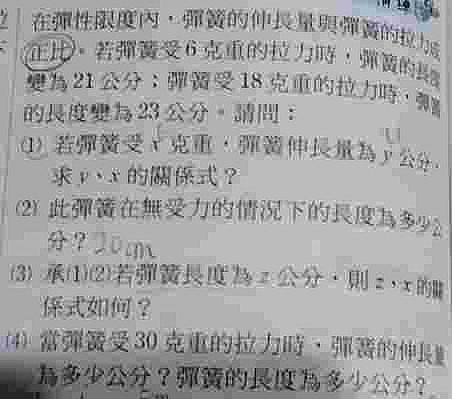 在彈性限度內,彈簧的伸長量與彈簧的拉力成
正比。若彈簧受6克重的拉力時,彈簧的長度
變為21公分;彈簧受18克重的拉力時,彈簧
的長度變為23公分。請問:
(1) 若彈簧受x克重,彈簧伸長量為y公分,
求y、x的關係式?
(2) 此彈簧在無受力的情況下的長度為多少公
分?20cm
(3) 承(1)(2)若彈簧長度為z公分,則z、x的關
係式如何?
(4) 當彈簧受30克重的拉力時,彈簧的伸長量
為多少公分?彈簧的長度為多少公分?